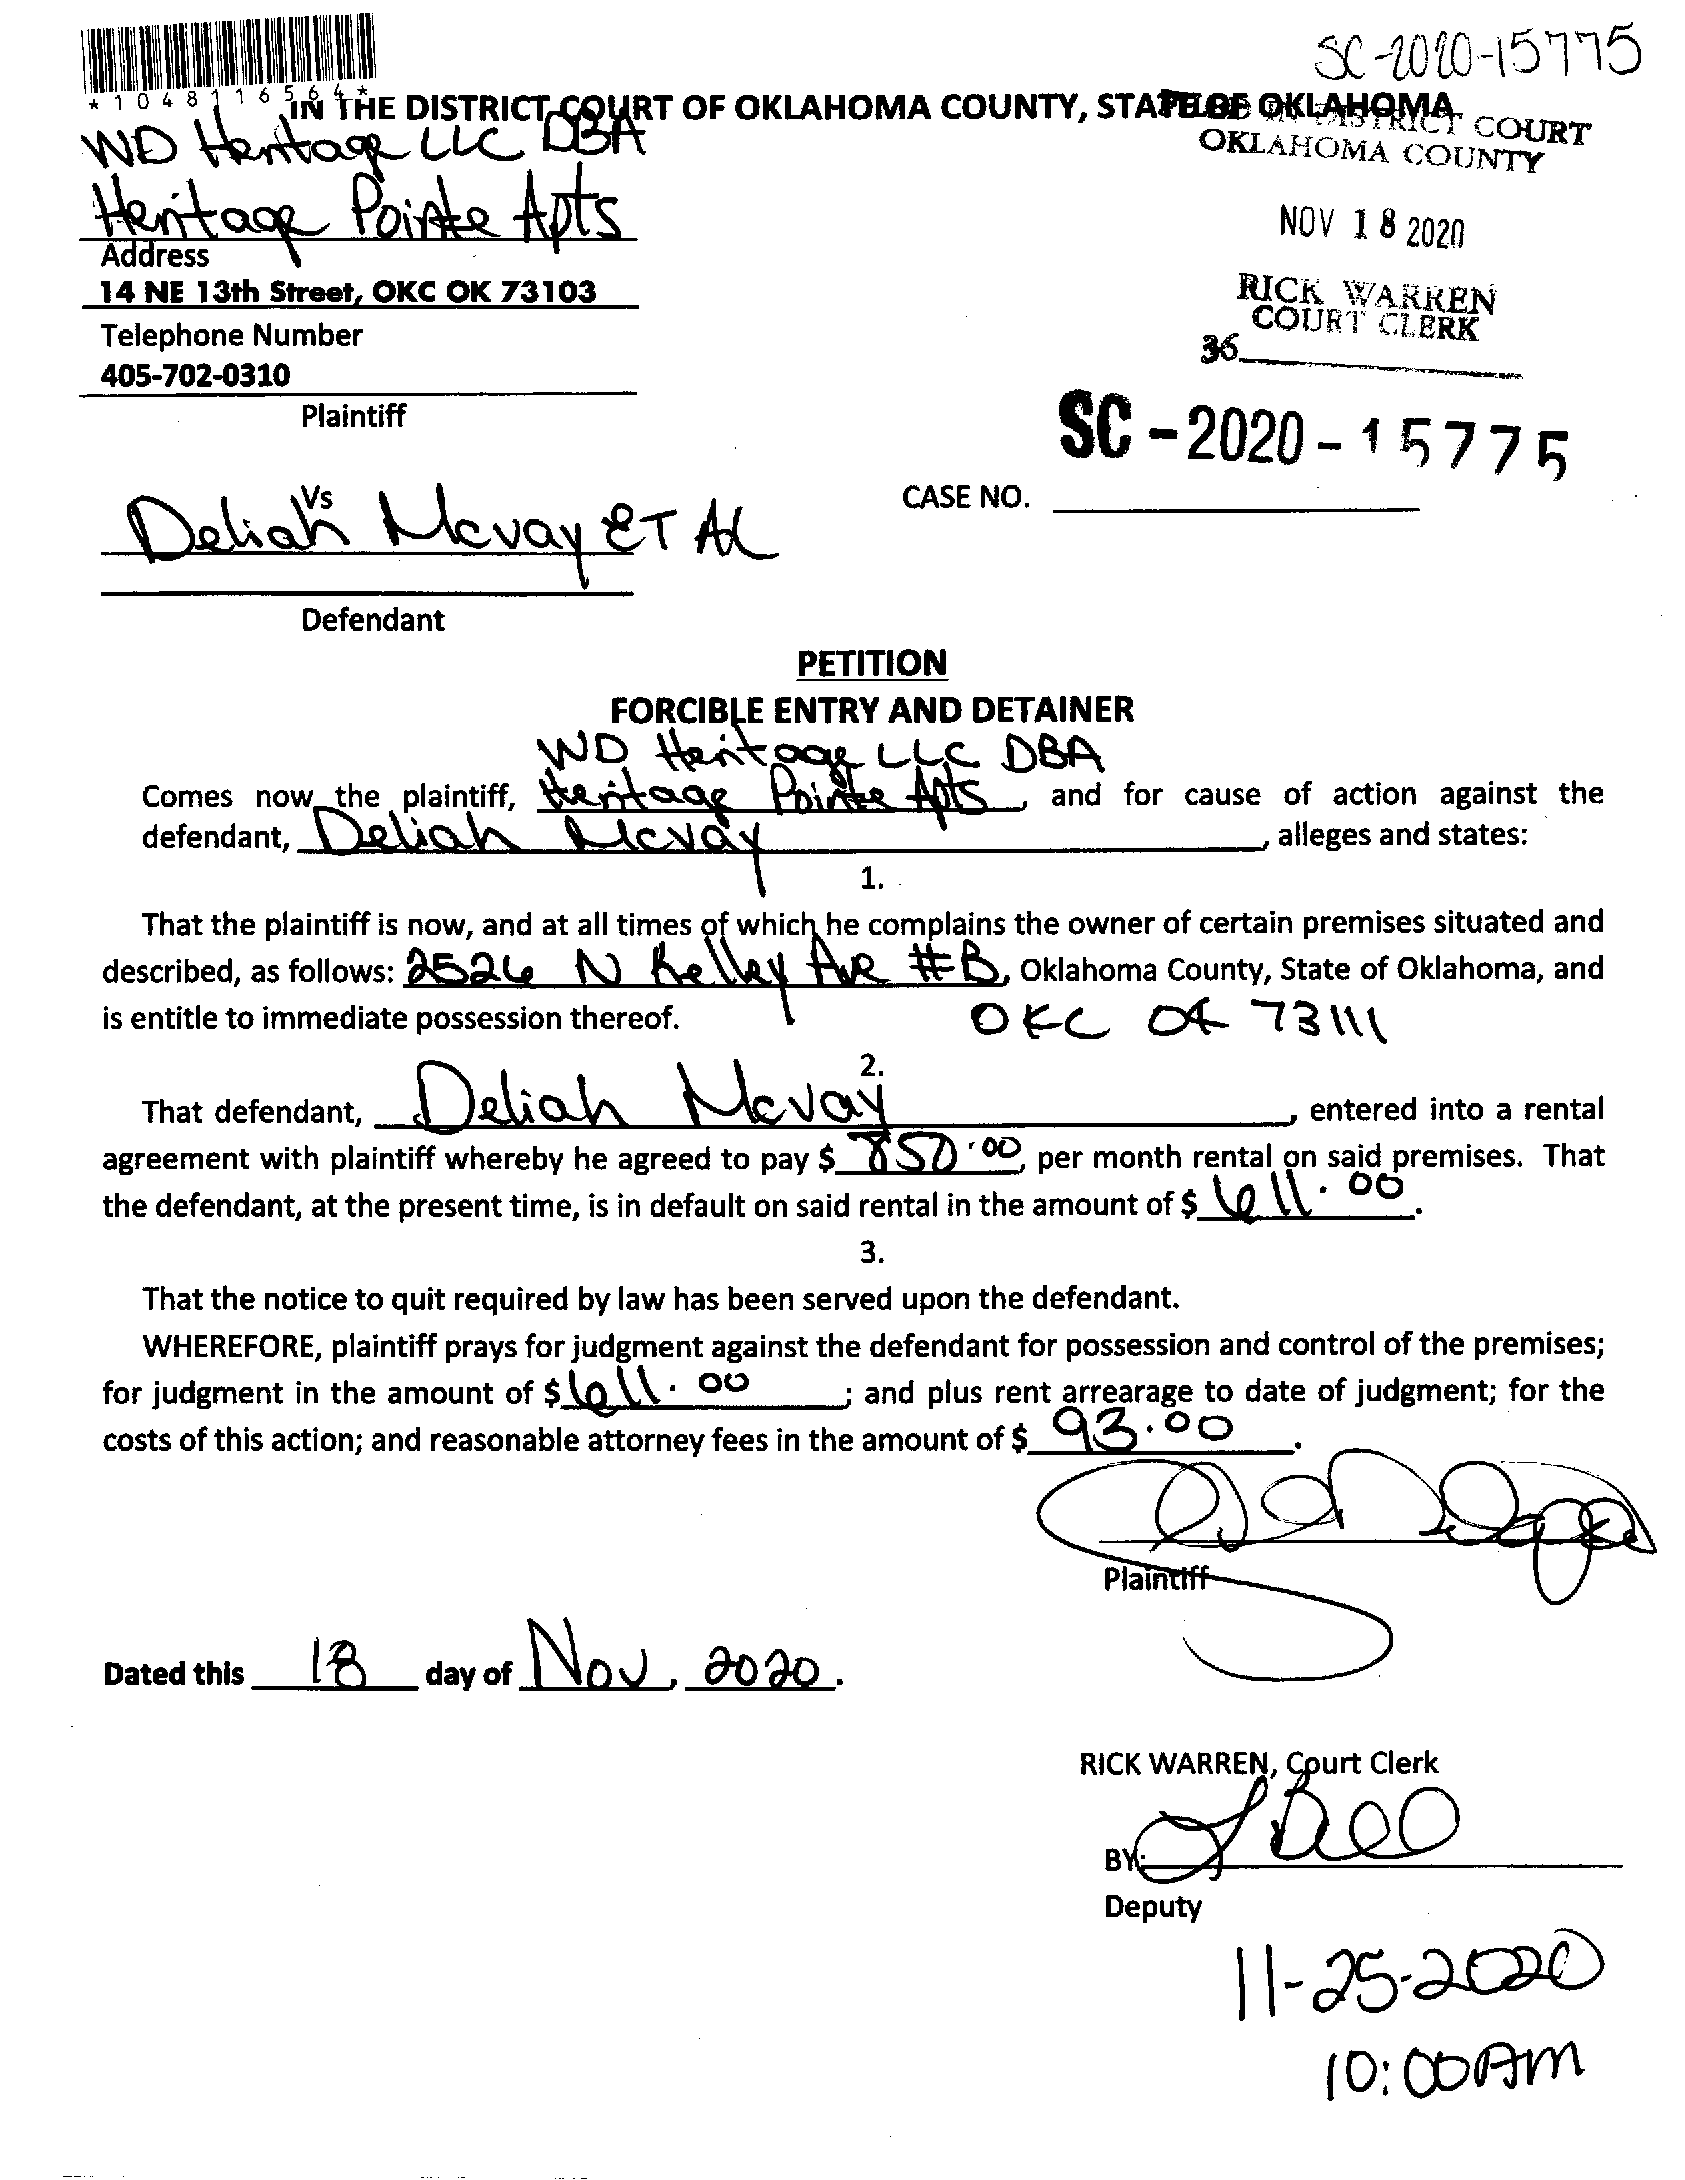 SC-2020-15775
*1048116564*
IN THE DISTRICT COURT OF OKLAHOMA COUNTY, STATE OF OKLAHOMA
FILED IN DISTRICT COURT
OKLAHOMA COUNTY
WD Heritage LLC DBA
Heritage Pointe Apts
NOV 18 2020
Address
14 NE 13th Street, OKC OK 73103
RICK WARREN
COURT CLERK
Telephone Number
36
405-702-0310
Plaintiff
SC-2020-15775
Vs
CASE NO.
Deliah Mcvay ET AL
Defendant
PETITION
FORCIBLE ENTRY AND DETAINER
WD Heritage LLC DBA
Comes now the plaintiff, Heritage Pointe Apts, and for cause of action against the
defendant, Deliah Mcvay, alleges and states:
1.
That the plaintiff is now, and at all times of which he complains the owner of certain premises situated and
described, as follows: 2526 N Kelley Ave #B, Oklahoma County, State of Oklahoma, and
is entitle to immediate possession thereof. OKC OK 73111
2.
That defendant, Deliah Mcvay, entered into a rental
agreement with plaintiff whereby he agreed to pay $ 850.00, per month rental on said premises. That
the defendant, at the present time, is in default on said rental in the amount of $ 611.00.
3.
That the notice to quit required by law has been served upon the defendant.
WHEREFORE, plaintiff prays for judgment against the defendant for possession and control of the premises;
for judgment in the amount of $ 611.00; and plus rent arrearage to date of judgment; for the
costs of this action; and reasonable attorney fees in the amount of $ 93.00.
Plaintiff
Dated this 18 day of Nov, 2020.
RICK WARREN, Court Clerk
BY:
Deputy
11-25-2020
10:00AM